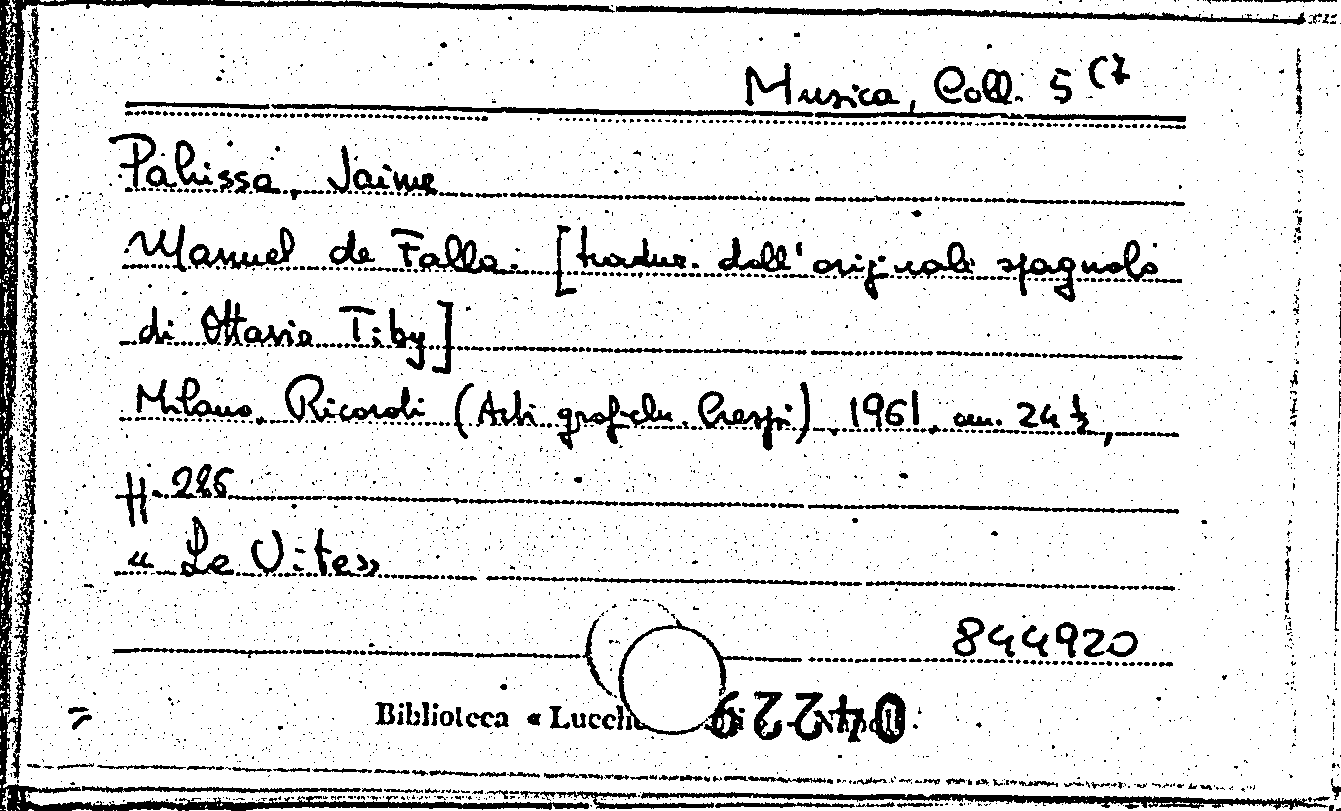 Musica, Coll. 5 (7
Pahissa, Jaime
Manuel de Falla. [traduz. dall'originale spagnolo
di Ottavio Tiby]
Milano, Ricordi (Arti grafiche Crespi), 1961, cm. 24½,
pp. 226
« Le Vite»
844920
Biblioteca «
04229